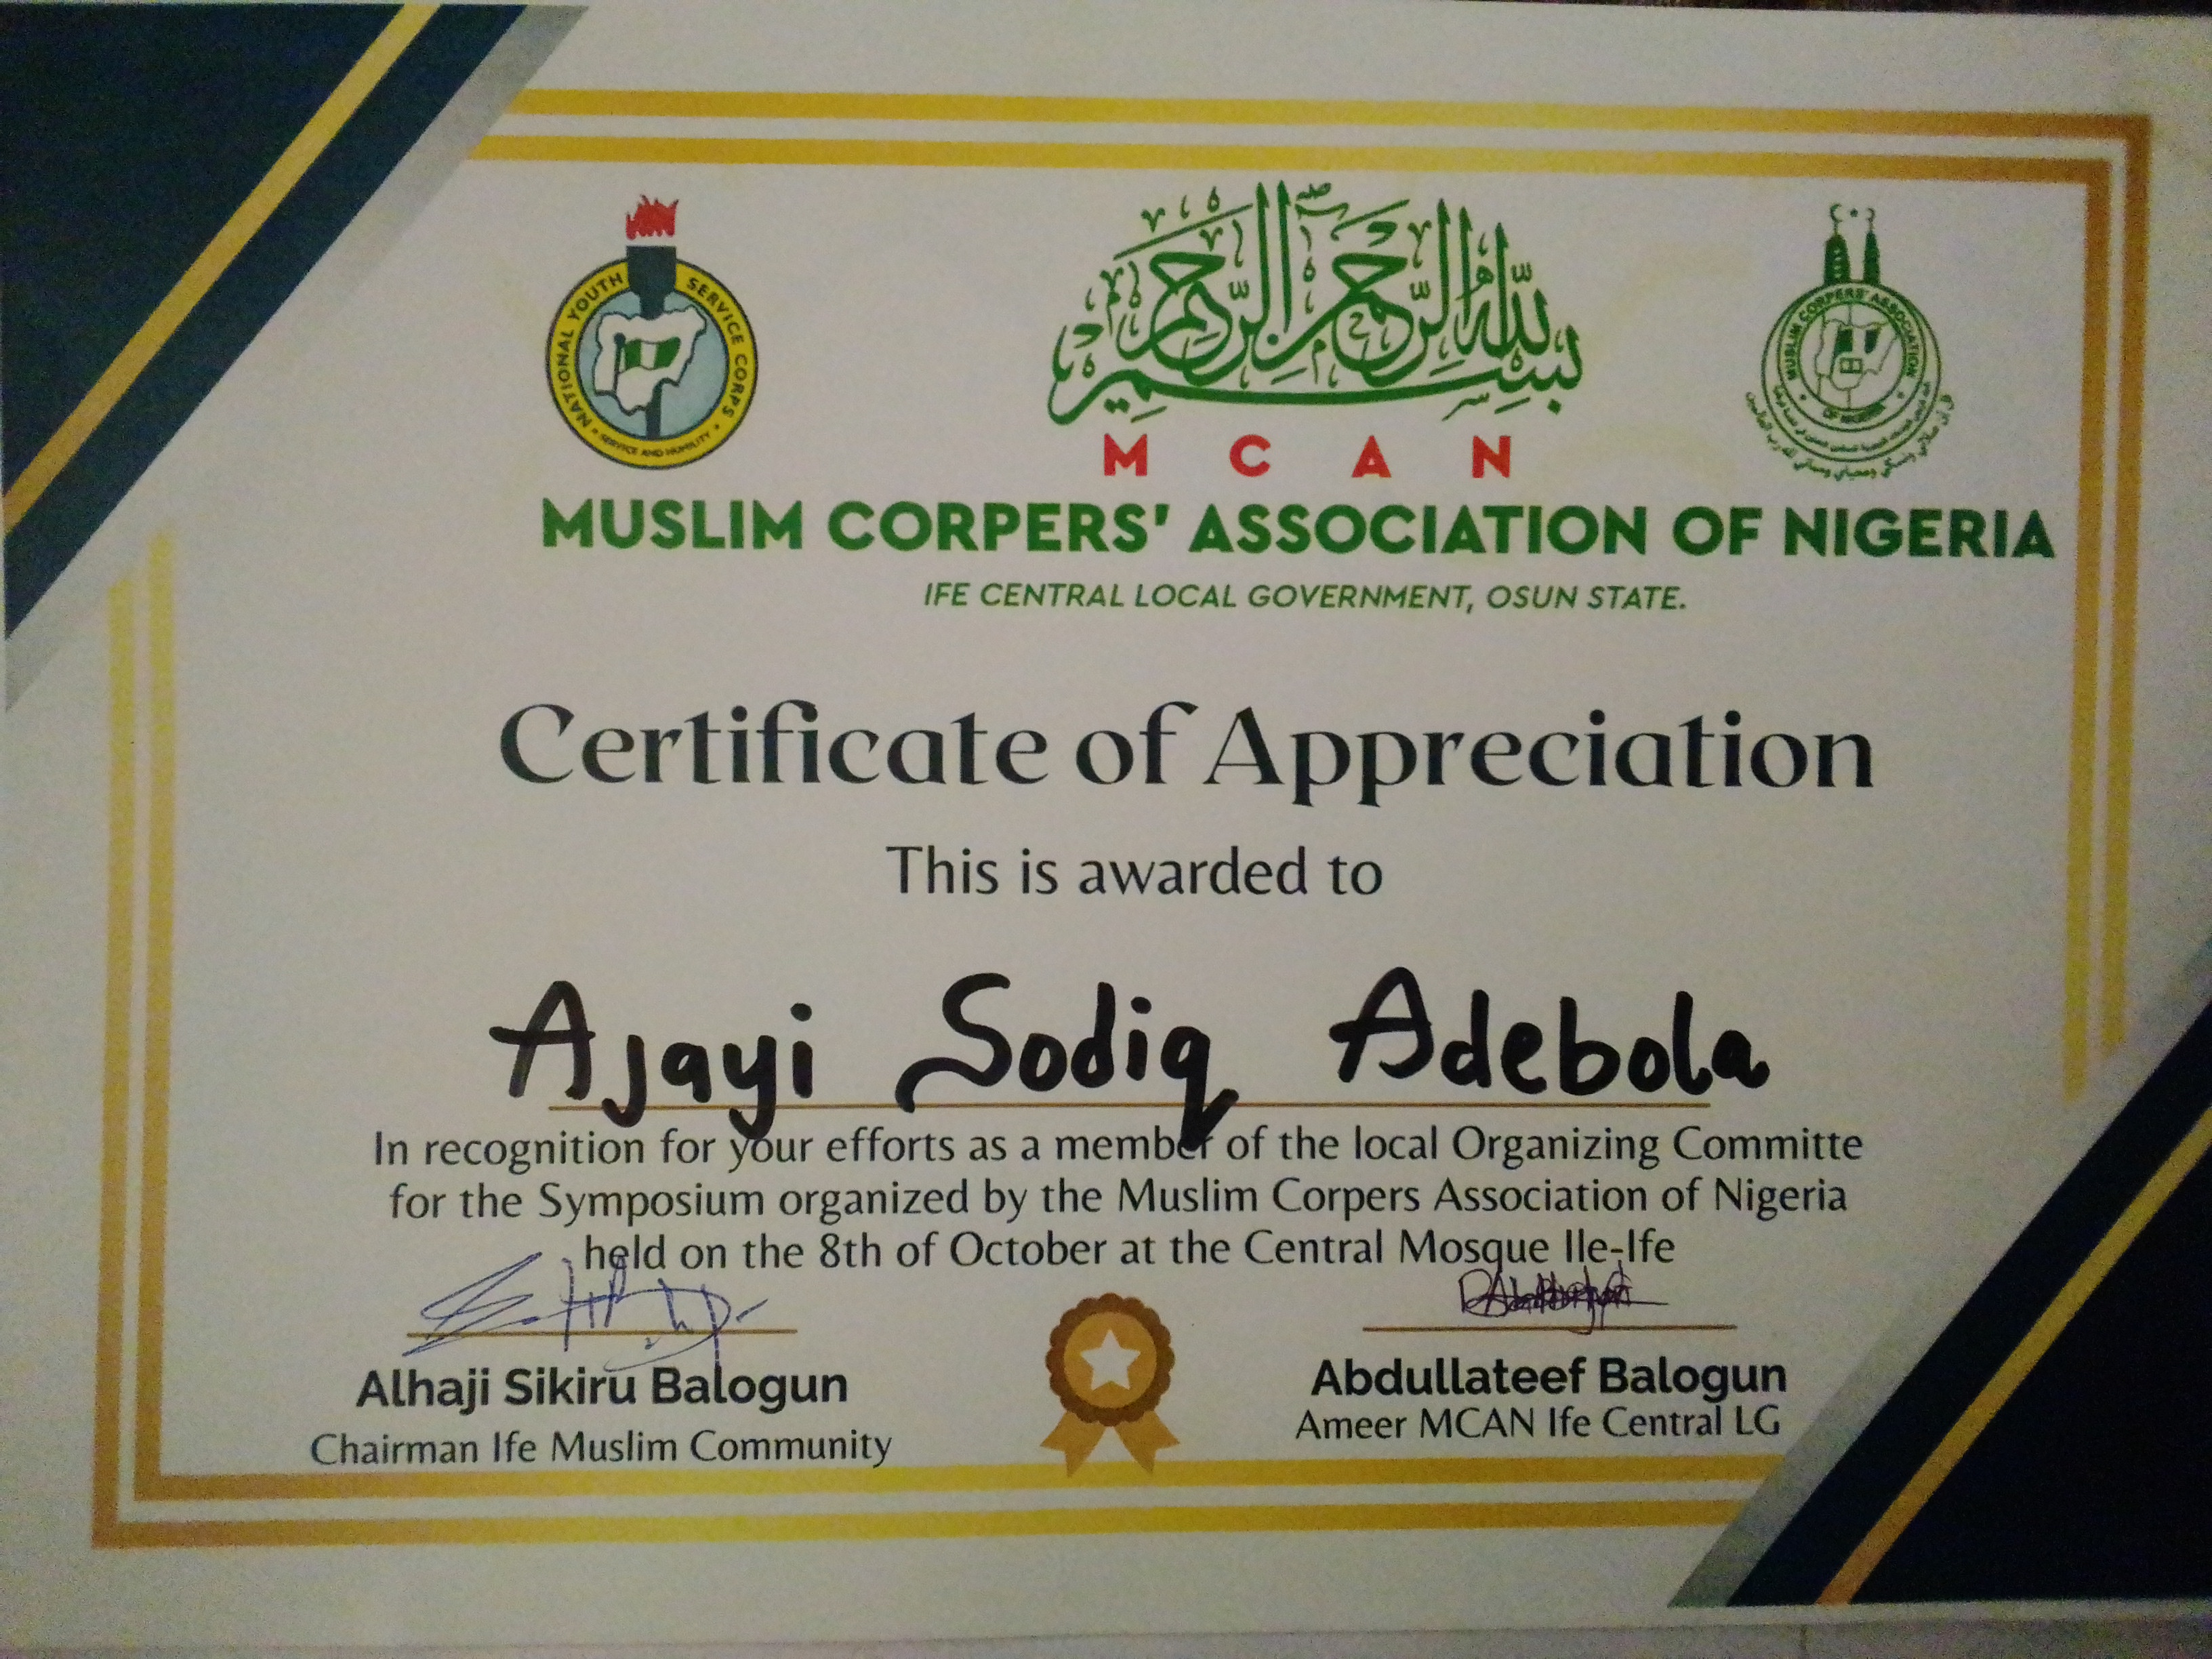 NATIONAL YOUTH SERVICE CORPS
SERVICE AND HUMILITY
بِسْمِ اللَّهِ الرَّحْمَٰنِ الرَّحِيمِ
MUSLIM CORPERS' ASSOCIATION
OF NIGERIA
قل إن صلاتي ونسكي ومحياي ومماتي لله رب العالمين
M C A N
MUSLIM CORPERS' ASSOCIATION OF NIGERIA
IFE CENTRAL LOCAL GOVERNMENT, OSUN STATE.
Certificate of Appreciation
This is awarded to
Ajayi Sodiq Adebola
In recognition for your efforts as a member of the local Organizing Committe
for the Symposium organized by the Muslim Corpers Association of Nigeria
held on the 8th of October at the Central Mosque Ile-Ife
Alhaji Sikiru Balogun
Chairman Ife Muslim Community
Abdullateef Balogun
Ameer MCAN Ife Central LG